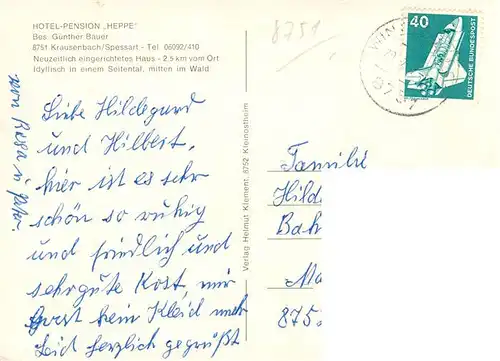 HOTEL-PENSION „HEPPE"
Bes: Günther Bauer
8751 Krausenbach/Spessart - Tel. 06092/410
Neuzeitlich eingerichtetes Haus - 2,5 km vom Ort
Idyllisch in einem Seitental, mitten im Wald
Liebe Hildegund
und Hilbert,
hier ist es sehr
schön so ruhig
und friedlich und
sehr gute Kost, mir
passt kein Kleid mehr
Seid herzlich gegrüßt
von Rosa u.
Verlag Helmut Klement, 8752 Kleinostheim
8751
40
DEUTSCHE BUNDESPOST
Familie
Hild
Bah
Ma
875